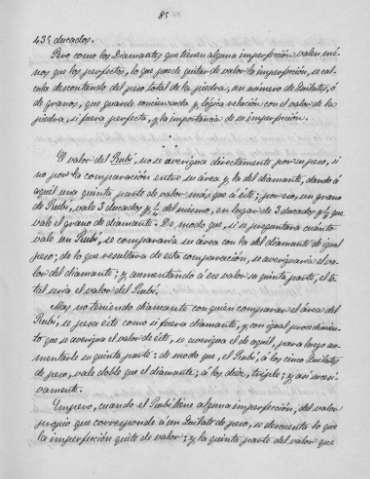 85
435 ducados.
Pero como los Diamantes que tienen alguna imperfección valen me-
nos que los perfectos, lo que puede quitar de valor la imperfección, se cal-
cula descontando del peso total de la piedra, un número de Quilates, ó
de granos, que guarde concienzuda y lógica relación con el valor de la
piedra, si fuera perfecta, y la importancia de su imperfección.
El valor del Rubí, no se averigua directamente por su peso, si
no por la comparación entre su área y la del diamante, dando á
aquel una quinta parte de valor más que á éste; por eso, un grano
de Rubí, vale 3 ducados y del mismo, en lugar de 3 ducados y que
vale el grano de diamante. De modo que, si se preguntara cuánto
vale un Rubí, se compararía su área con la del diamante de igual
peso; de lo que resultara de esta comparación, se averiguaría el va-
lor del diamante; y aumentando á ese valor su quinta parte, el to-
tal sería el valor del Rubí.
Mas no teniendo diamante con quien comparar el área del
Rubí, se pesa éste como si fuera diamante, y con igual procedimien-
to que se averigua el valor de éste, se averigua el de aquel, para luego au-
mentarle su quinta parte: de modo que, el Rubí, á los cinco Quilates
de peso, vale doble que el diamante; á los diez, triple; y así sucesi-
vamente.
Empero, cuando el Rubí tiene alguna imperfección, del valor
propio que corresponde á un Quilate de peso, se descuenta lo que
la imperfección quite de valor; y la quinta parte del valor que